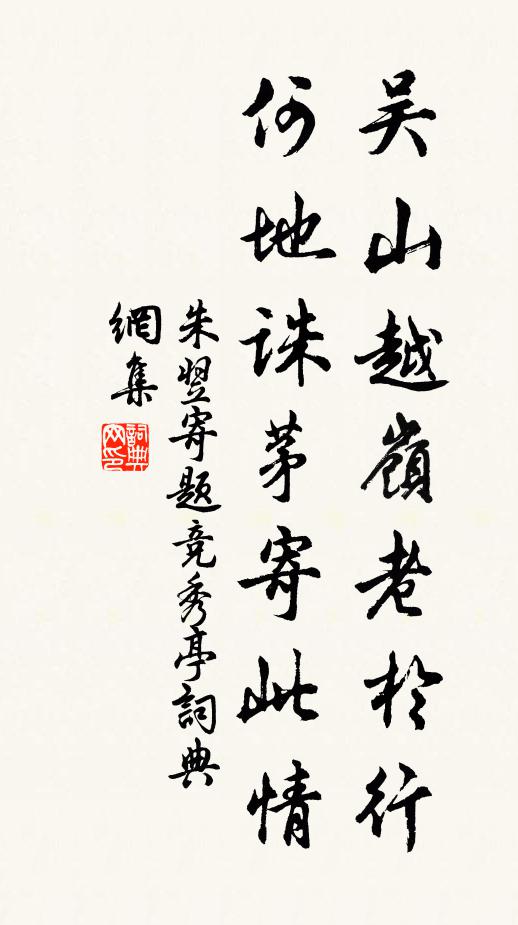 吴山越嶺老於行
何地誅茅寄此情
朱翌寄题竞秀亭詞典
網集
詞典
网印